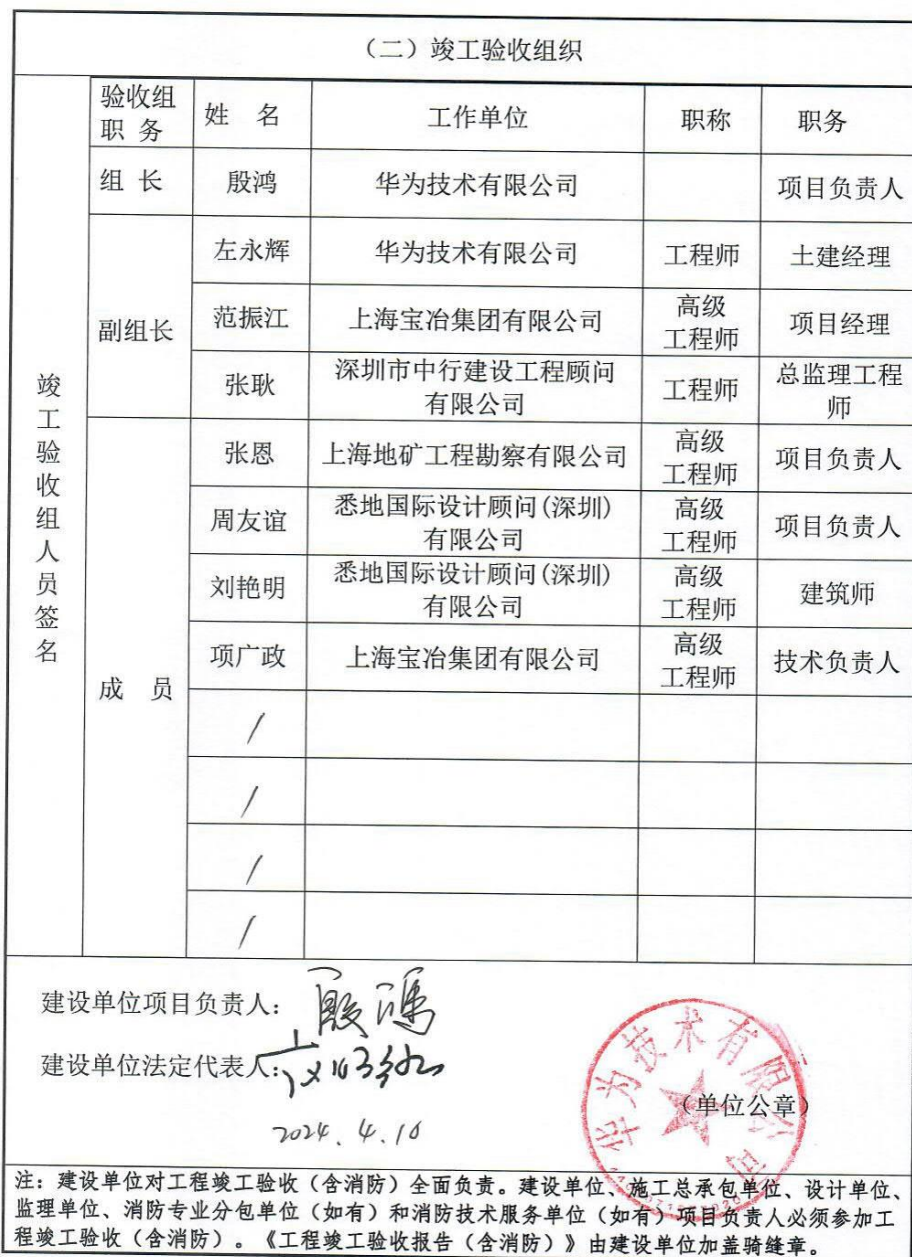 （二）竣工验收组织
竣工验收组人员签名
验收组
职 务
姓 名
工作单位
职称
职务
组 长
殷鸿
华为技术有限公司
项目负责人
副组长
左永辉
华为技术有限公司
工程师
土建经理
范振江
上海宝冶集团有限公司
高级
工程师
项目经理
张耿
深圳市中行建设工程顾问
有限公司
工程师
总监理工程
师
成 员
张恩
上海地矿工程勘察有限公司
高级
工程师
项目负责人
周友谊
悉地国际设计顾问(深圳)
有限公司
高级
工程师
项目负责人
刘艳明
悉地国际设计顾问(深圳)
有限公司
高级
工程师
建筑师
项广政
上海宝冶集团有限公司
高级
工程师
技术负责人
/
/
/
/
建设单位项目负责人：殷鸿
建设单位法定代表人：
2024.4.10
华为技术有限公司
（单位公章）
注：建设单位对工程竣工验收（含消防）全面负责。建设单位、施工总承包单位、设计单位、
监理单位、消防专业分包单位（如有）和消防技术服务单位（如有）项目负责人必须参加工
程竣工验收（含消防）。《工程竣工验收报告（含消防）》由建设单位加盖骑缝章。